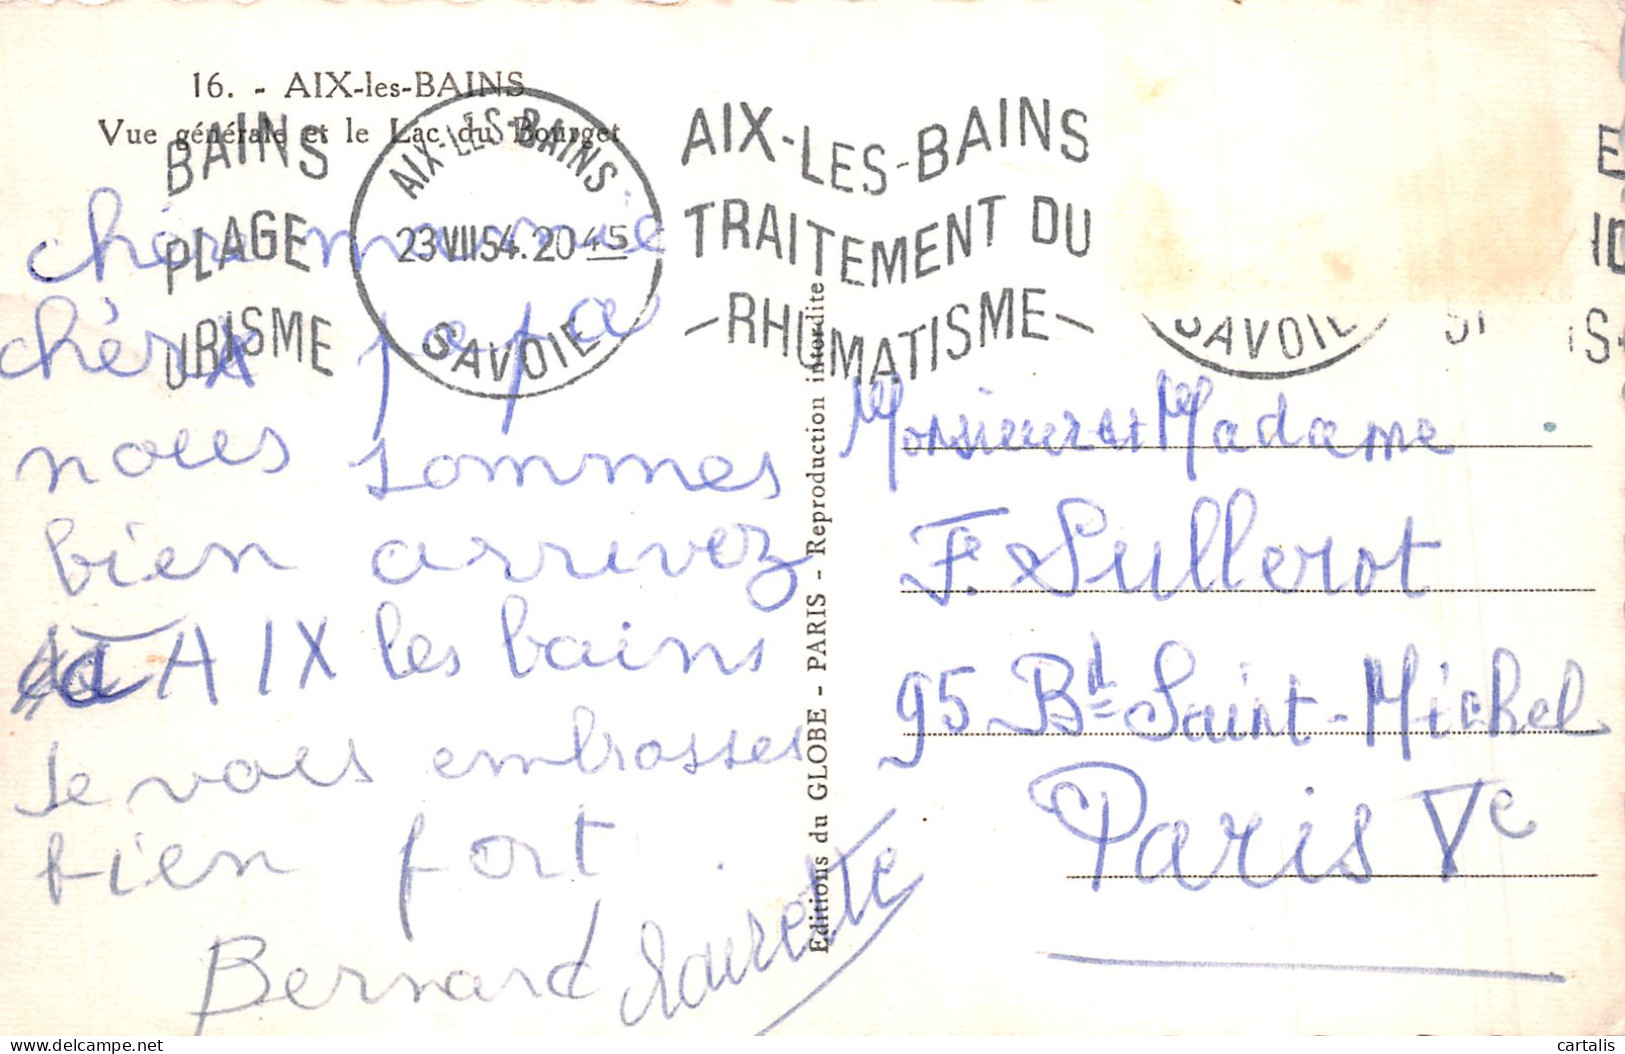 16. - AIX-les-BAINS
Vue générale et le Lac du Bourget
BAINS
PLAGE
URISME
AIX-LES-BAINS
23 VIII 54. 20 45
SAVOIE
AIX-LES-BAINS
TRAITEMENT DU
-RHUMATISME-
SAVOIE
chère mamie
chèr papa
nous sommes
bien arrivez
A AIX les bains
Je vous embrasses
bien fort
Bernard Laurette
Editions du GLOBE - PARIS - Reproduction interdite
Monsieur et Madame
F. Sullerot
95 Bd Saint-Michel
Paris Ve
cartalis